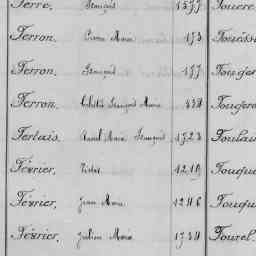 Ferre, François 1577 Fouere
Ferron. Pierre Marie 173
Ferron. François 177 Fouger
Ferron. François Marie 438 Fougera
Fertais. Marie François 1723 Foulau
Février. Victor 1219 Fouque
Février. Jean Marie 1246 Fouqu
Février. Julien Marie 1738 Fourel.